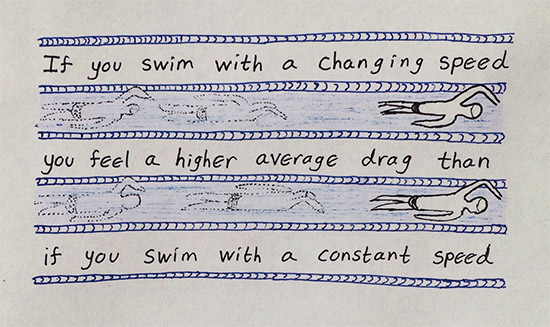 If you swim with a changing speed
you feel a higher average drag than
if you swim with a constant speed